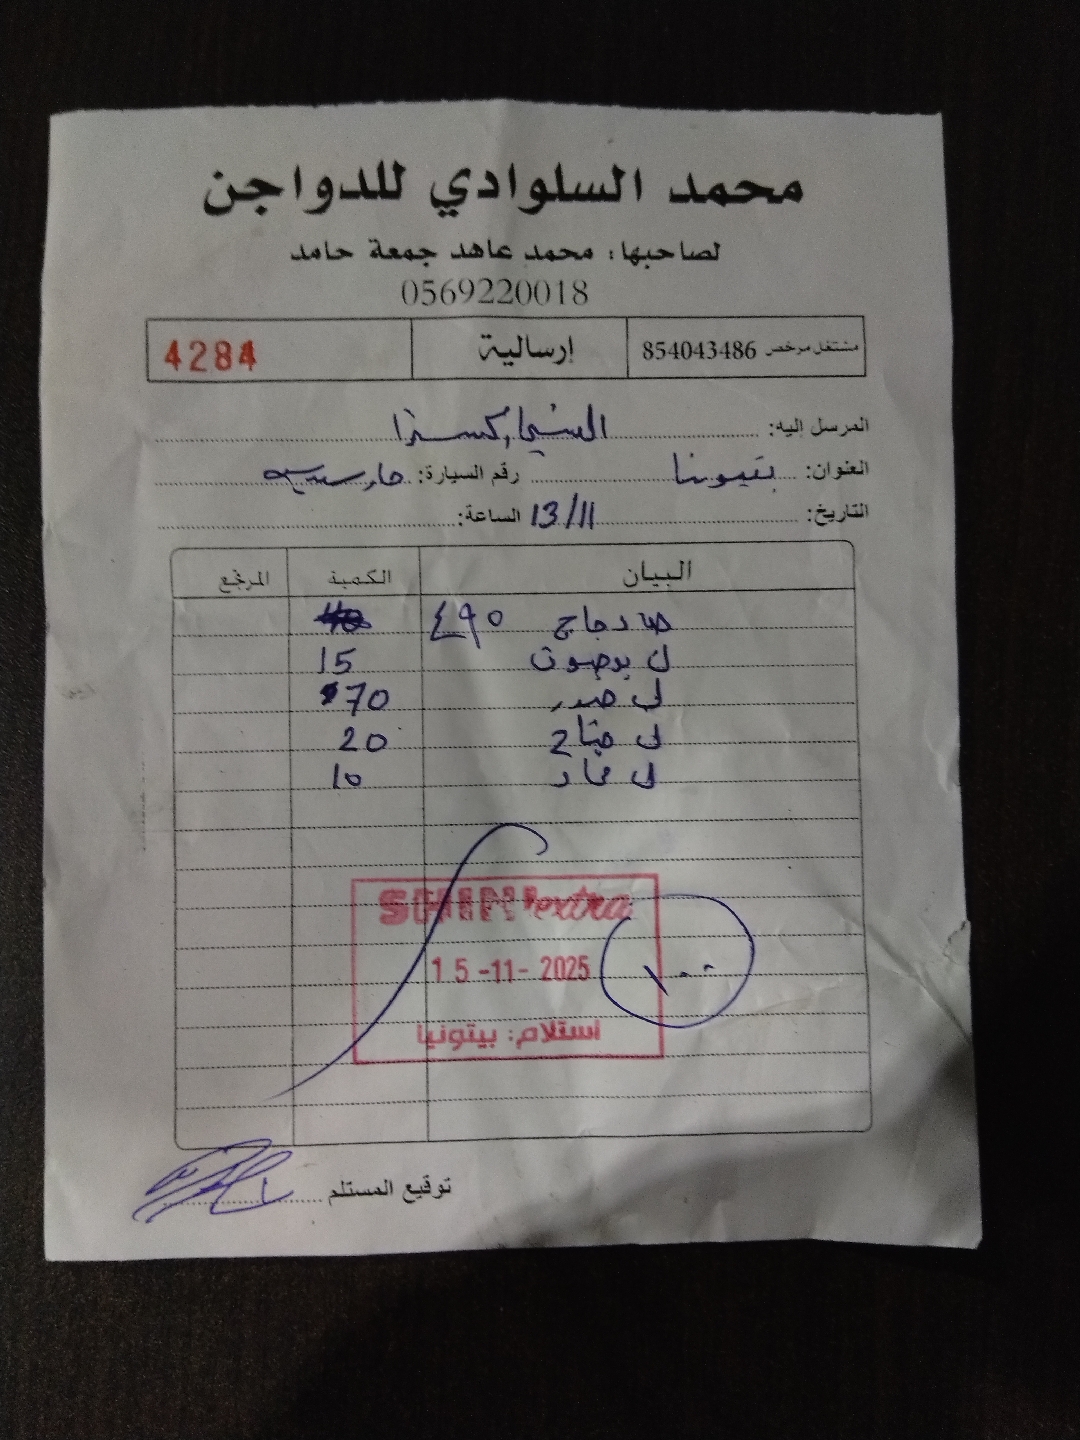 محمد السلوادي للدواجن
لصاحبها: محمد عاهد جمعة حامد
0569220018
مشتغل مرخص 854043486 إرسالية 4284
المرسل إليه: الشني اكسترا
العنوان: بتيونيا رقم السيارة:
التاريخ: 13/11 الساعة:
البيان الكمية المرتجع
دجاج ٤٩٠
ل 15
ل صدر 70
ل جناح 20
ل 10
SHINI extra
15-11-2025
١٠٠
استلام: بيتونيا
توقيع المستلم